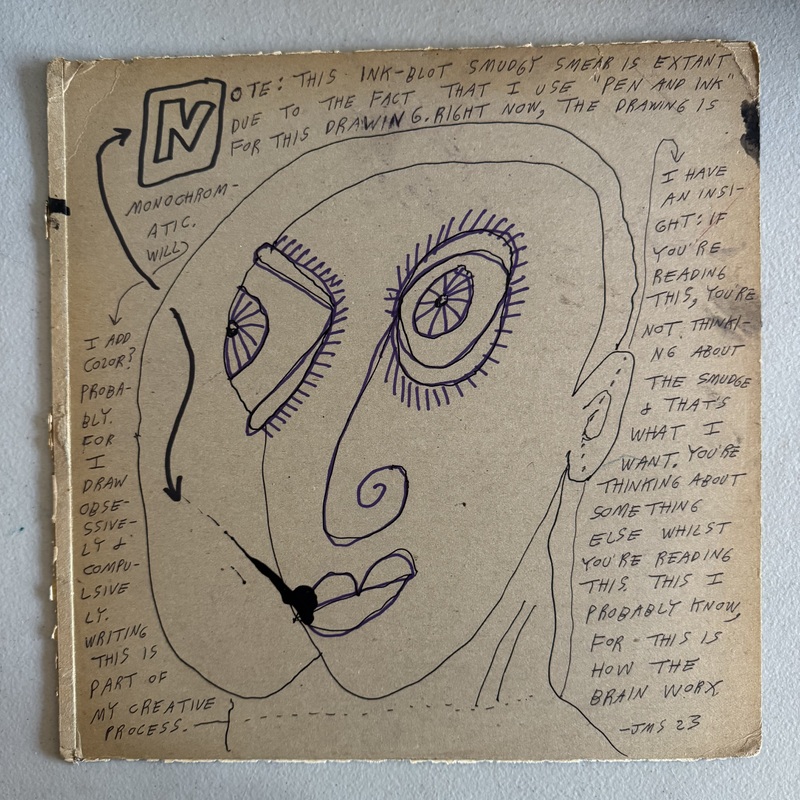 NOTE: THIS INK-BLOT SMUDGY SMEAR IS EXTANT
DUE TO THE FACT THAT I USE "PEN AND INK"
FOR THIS DRAWING. RIGHT NOW, THE DRAWING IS
MONOCHROM-
ATIC.
WILL
I ADD
COLOR?
PROBA-
BLY.
FOR
I
DRAW
OBSE-
SSIVE-
LY &
COMPU-
LSIVE
LY.
WRITING
THIS IS
PART OF
MY CREATIVE
PROCESS.
I HAVE
AN INSI-
GHT: IF
YOU'RE
READING
THIS, YOU'RE
NOT THINKI-
NG ABOUT
THE SMUDGE
& THAT'S
WHAT I
WANT. YOU'RE
THINKING ABOUT
SOMETHING
ELSE WHILST
YOU'RE READING
THIS. THIS I
PROBABLY KNOW,
FOR - THIS IS
HOW THE
BRAIN WORX
-JMS 23